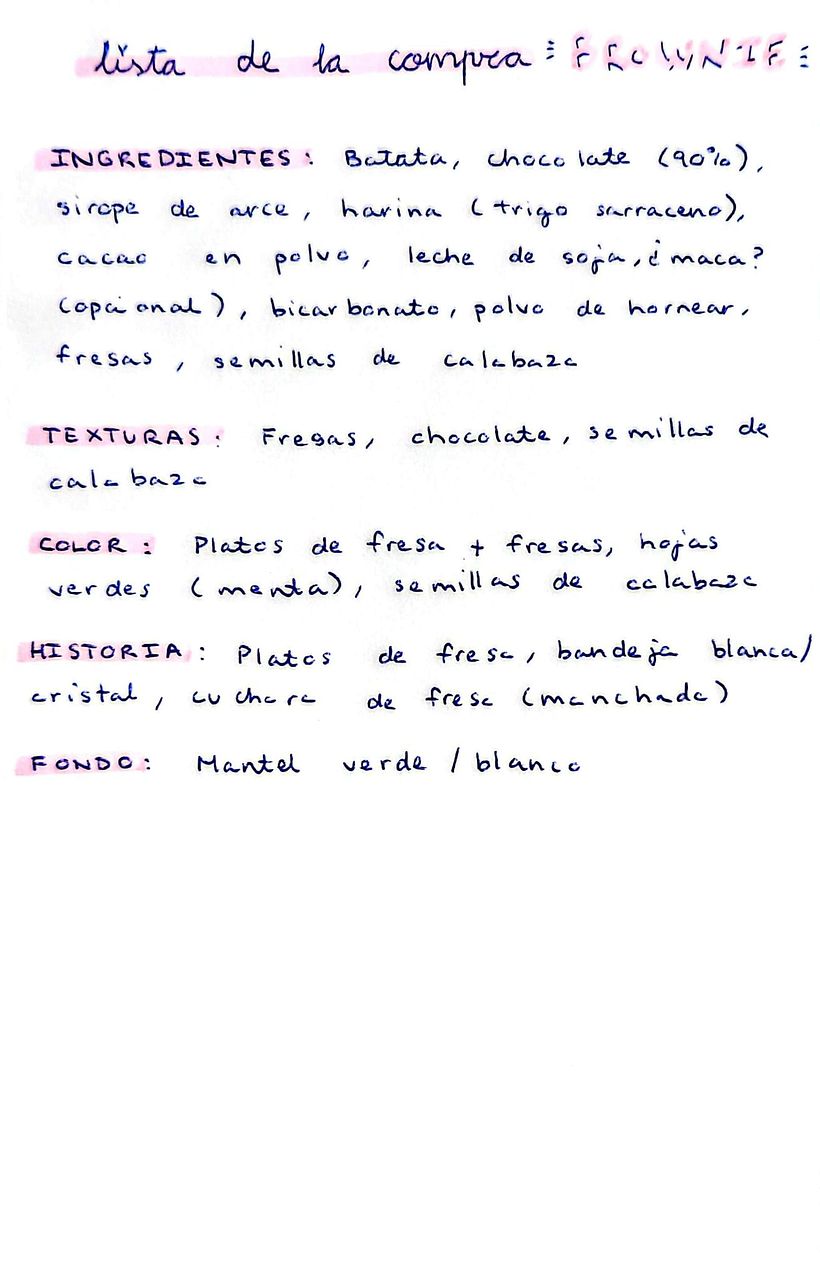 lista de la compra : BROWNIE :
INGREDIENTES : Batata, chocolate (90%),
sirope de arce, harina (trigo sarraceno),
cacao en polvo, leche de soja, ¿maca?
(opcional), bicarbonato, polvo de hornear,
fresas, semillas de calabaza
TEXTURAS : Fresas, chocolate, semillas de
calabaza
COLOR : Platos de fresa + fresas, hojas
verdes (menta), semillas de calabaza
HISTORIA : Platos de fresa, bandeja blanca/
cristal, cuchara de fresa (manchada)
FONDO : Mantel verde / blanco